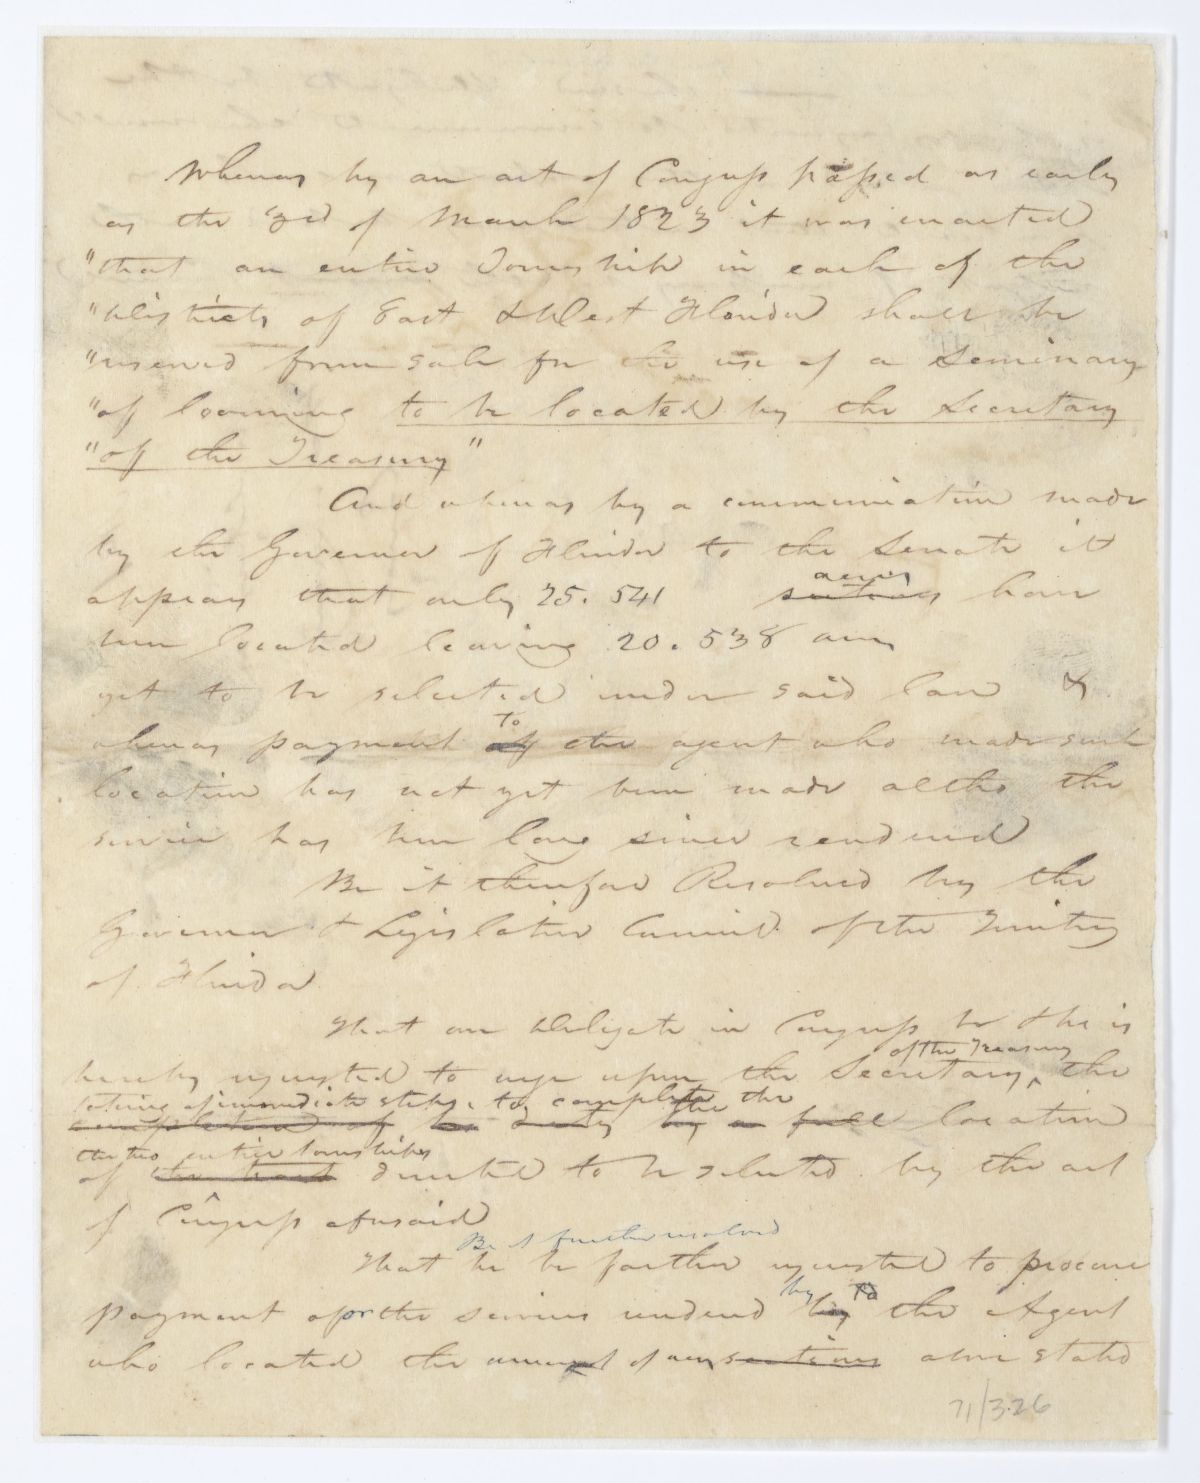 Whereas by an act of Congress passed as early
as the 3rd of March 1823 it was enacted
"that an entire Township in each of the
"Districts of East & West Florida shall be
"reserved from sale for the use of a Seminary
"of learning to be located by the Secretary
"of the Treasury"
And whereas by a communication made
by the Governor of Florida to the Senate it
acres
appears that only 25.541 sections have
been located leaving 20.538 acres
yet to be selected under said law &
To
whereas payment of the agent who made such
location has not yet been made altho the
service has been long since rendered
Be it therefore Resolved by the
Governor & Legislative Council of the Territory
of Florida
That our Delegate in Congress be & he is
of the Treasury
hereby requested to urge upon the Secretary, the
taking of immediate steps to complete the
completion of his duty by a full location
the two entire townships
of the tract directed to be selected by the act
of Congress aforesaid
Be it further resolved
That he be further requested to procure
by To
payment for the services rendered by the Agent
who located the amount of acres sections above stated
71/3.26